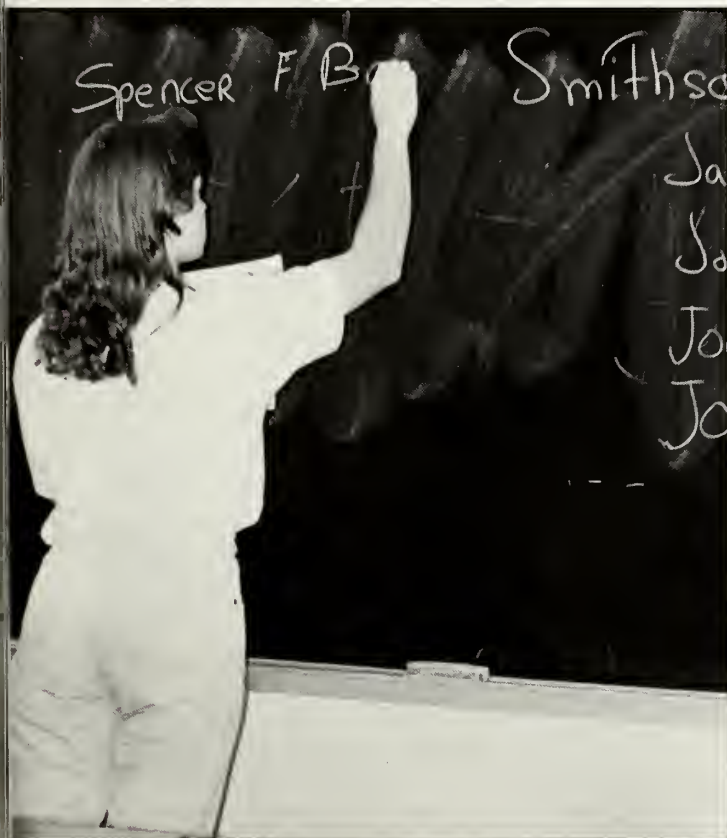 Spencer F. B
Smithso
Ja
Jo
Jo
JO